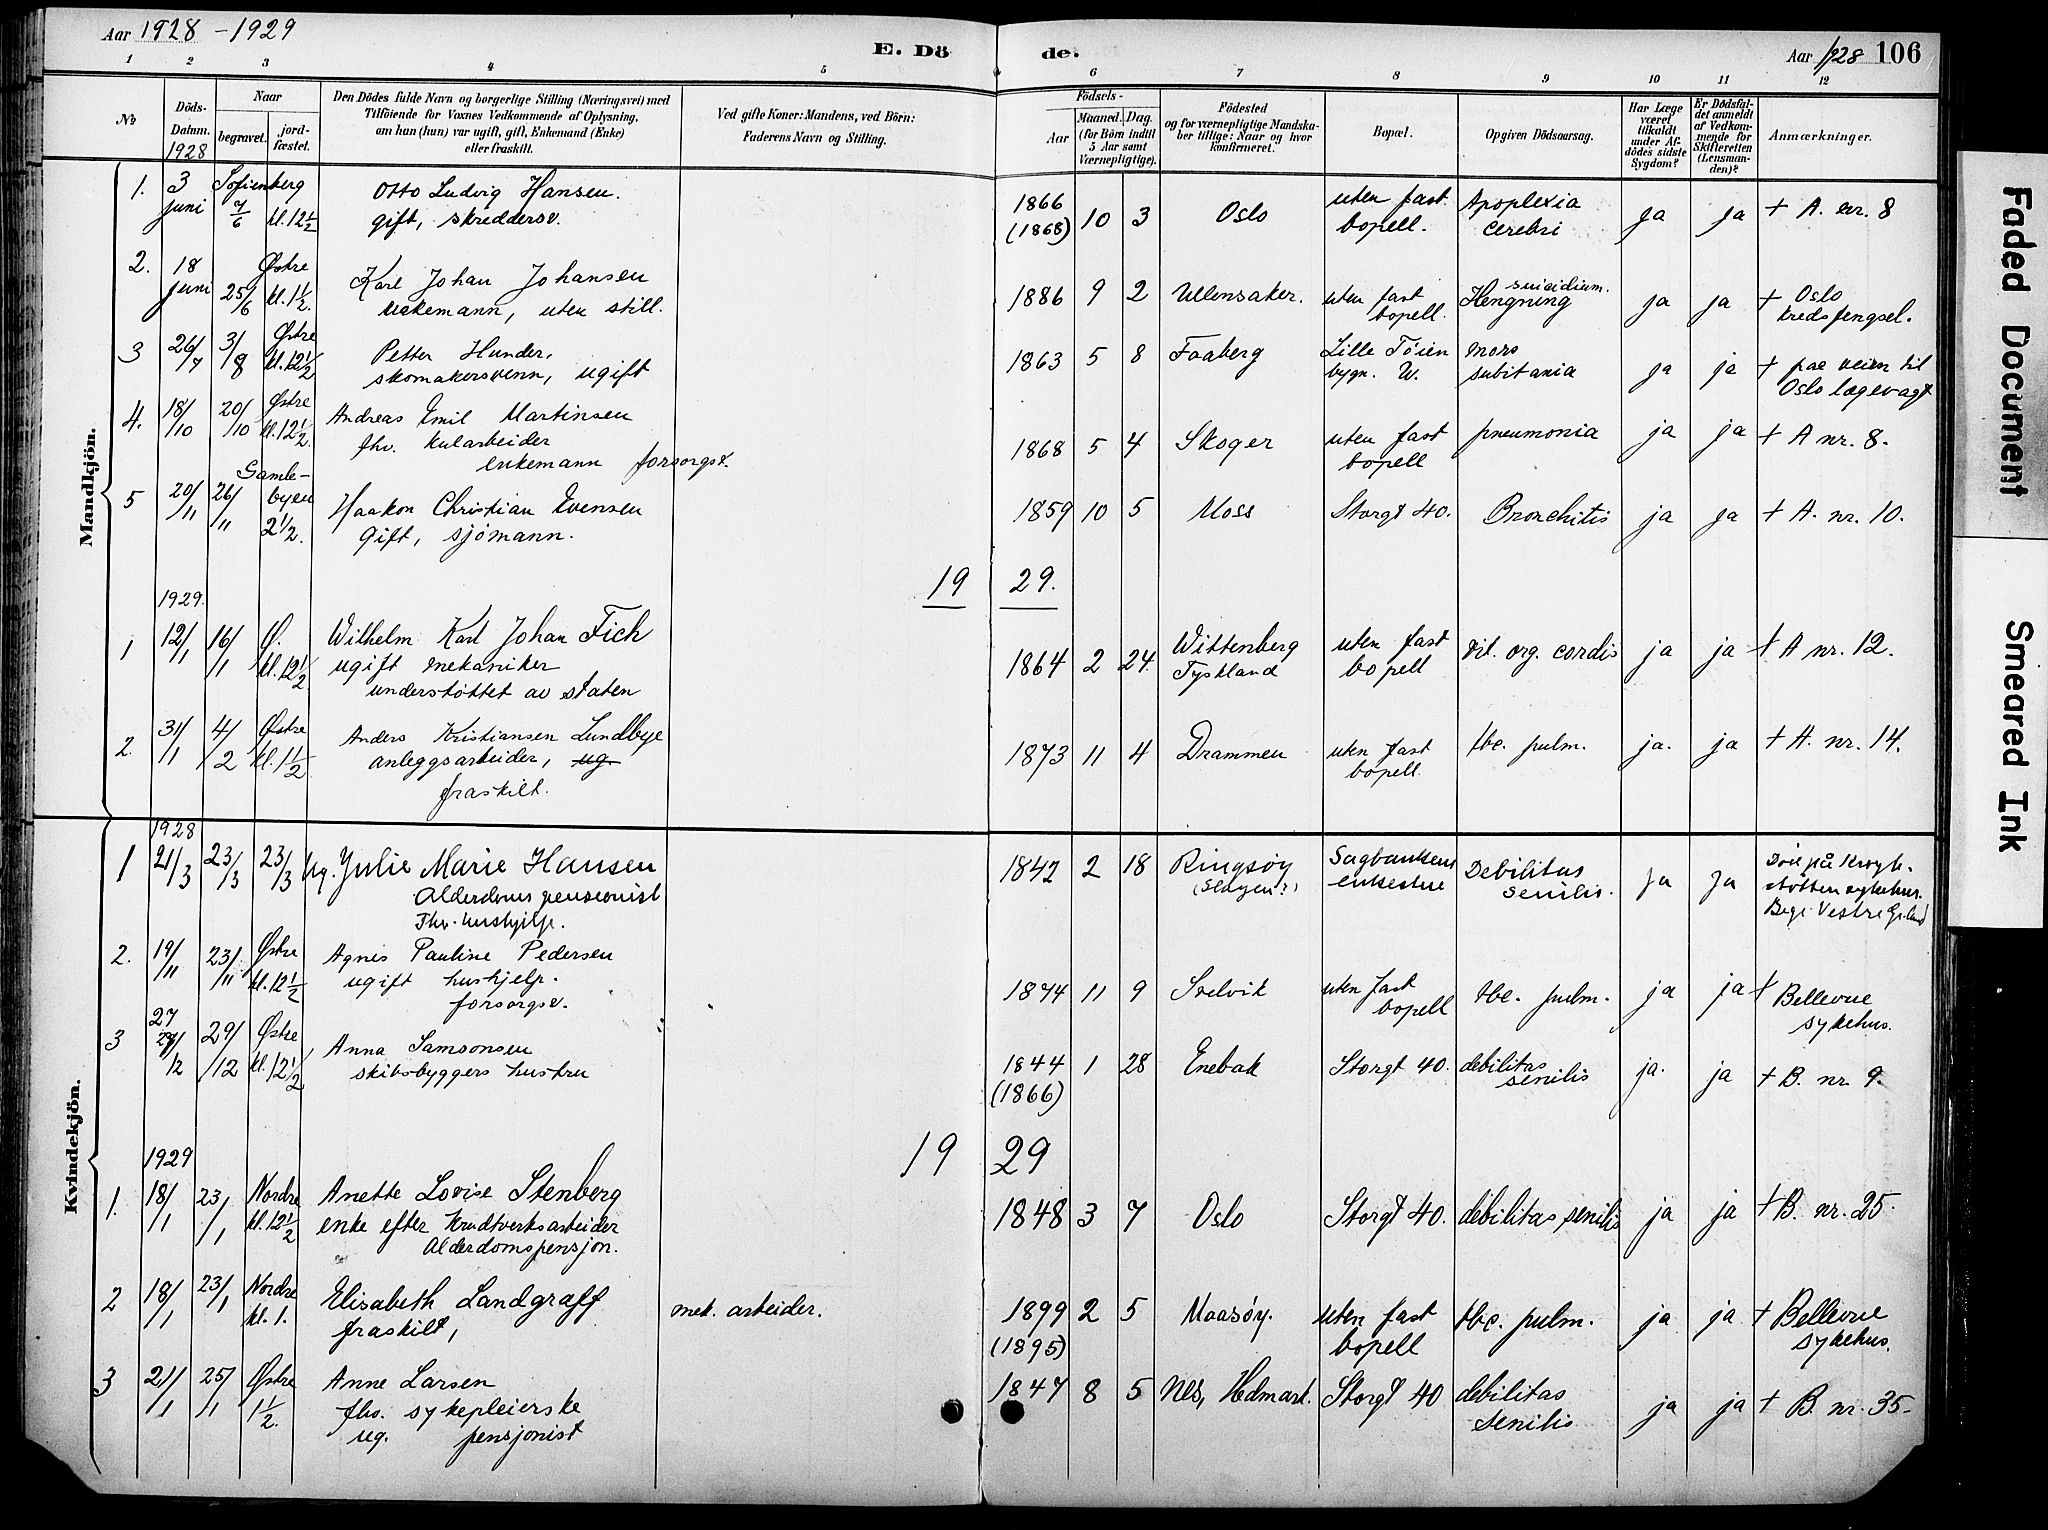 Aar 1928 - 1929
E. Dö de.
Aar 1928 106
1 2 3 4 5 6 7 8 9 10 11 12
No
Döds-Datum.
1928
Naar
begravet.
jord-fæstet.
Den Dödes fulde Navn og borgerlige Stilling (Næringsvei) med
Tilföiende for Voxnes Vedkommende af Oplysning,
om han (hun) var ugift, gift, Enkemand (Enke)
eller fraskilt.
Ved gifte Koner: Mandens, ved Börn:
Faderens Navn og Stilling.
Födsels-
Aar
Maaned. Dag.
(for Börn indtil
5 Aar samt
Værnepligtige).
Födested
og for værnepligtige Mandska-
ber tillige: Naar og hvor
konfirmeret.
Bopæl.
Opgiven Dödsaarsag.
Har Læge
været
tilkaldt
under Af-
dödes sidste
Sygdom?
Er Dödsfal-
det anmeldt
af Vedkom-
mende for
Skifteretten
(Lensman-
den)?
Anmærkninger.
Mandkjön.
1. 3 juni 7/6 Sofienberg kl. 12 1/2 Otto Ludvig Hansen.
gift, skreddersv.
1866 (1868) 10 3 Oslo uten fast bopell. Apoplexia cerebri ja ja + A. nr. 8
2. 18 juni 25/6 Østre kl. 1 1/2. Karl Johan Johansen
enkemann, uten still.
1886 9 2 Ullensaker. uten fast bopell. suicidium. Hengning ja ja + Oslo kredsfengsel.
3 26/7 3/8 Østre kl. 12 1/2 Petter Hunder,
skomakersvenn, ugift
1863 5 8 Faaberg Lille Tøien bygn. W. mors subitania ja ja + paa veien til Oslo lægevagt
4. 18/10 20/10 Østre kl. 12 1/2. Andreas Emil Martinsen
fhv. kularbeider
enkemann forsorgst.
1868 5 4 Skoger uten fast bopell pneumonia ja ja + A nr. 8.
5 20/11 26/11 Gamle-byen 2 1/2. Haakon Christian Evensen
Gift, sjömann.
1859 10 5 Moss Storgt 40. Bronchitis ja ja + A. nr. 10.
19 29.
1929.
1 12/1 16/1 Ø. kl. 12 1/2 Wilhelm Karl Johan Fich
ugift mekaniker
understöttet av staten
1864 2 24 Wittenberg Tyskland uten fast bopell vit. org. cordis ja ja + A nr. 12.
2. 31/1 4/2 Østre kl. 1 1/2 Anders Kristiansen Lundbye
anleggsarbeider, ug.
fraskilt.
1873 11 4 Drammen uten fast bopell. tbc. pulm. ja. ja + A. nr. 14.
Kvindekjön.
1928
1 21/3 23/3 23/3 Ug. Julie Marie Hansen
Alderdoms pensionist
Fhv. hushjelp.
1842 2 18 Ringsøy (Slagen?) Sagbankens enkestue Debilitas senilis. ja ja Død på Krogh-støtten sykehus. Begr. Vestre Gr.lund
2. 19/11 23/11 Østre kl. 12 1/2 Agnes Pauline Pedersen
ugift hushjelp.
forsorgsv.
1874 11 9 Svelvik uten fast bopell tbc. pulm. ja ja + Bellevue sykehus.
3 27/12 29/12 Østre kl. 12 1/2 Anna Samsonsen
skibsbyggers hustru
1844 (1866) 1 28 Enebak Storgt 40. debilitas senilis ja. ja + B. nr. 9.
19 29
1929
1. 18/1 23/1 Nordre kl. 12 1/2 Anette Lovise Stenberg
enke efter Krudtverksarbeider
Alderdomspensjon.
1848 3 7 Oslo Storgt 40. debilitas senilis ja ja + B. nr. 25.
2 18/1 23/1 Nordre kl. 1. Elisabeth Landgraff
fraskilt,
mek. arbeider.
1899 (1895) 2 5 Maasøy. uten fast bopell tbc. pulm. ja ja + Bellevue sykehus.
3 21/1 25/1 Østre 1 1/2. Anne Larsen
fhv. sykepleierske
ug. pensjonist
1847 8 5 Nes, Hedmark. Storgt 40 debilitas senilis ja ja + B. nr. 35-
Faded Document
Smeared Ink